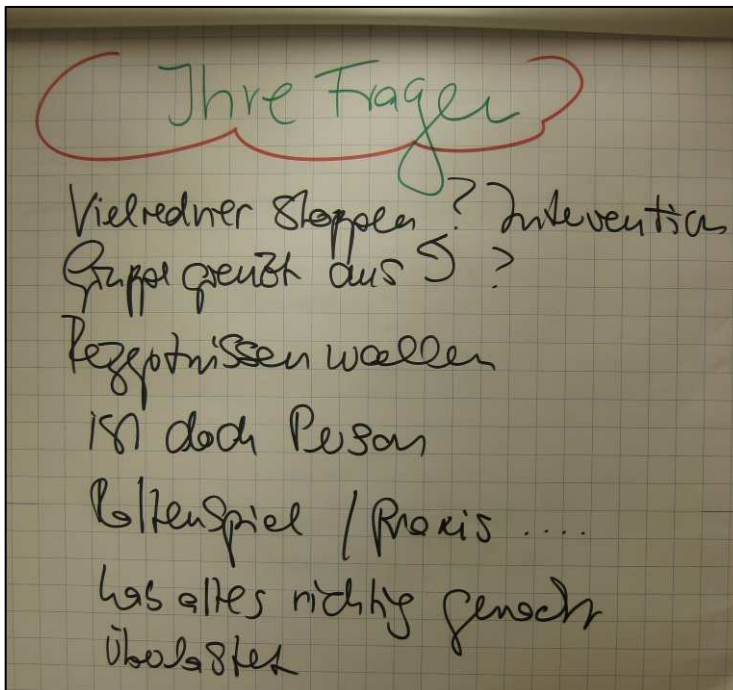 Ihre Fragen
Vielredner stoppen? Intervention
Gruppe grenzt aus 5 ?
Rezeptwissen wollen
ist doch Person
Rollenspiel / Praxis ....
hab alles richtig gemacht
überlastet